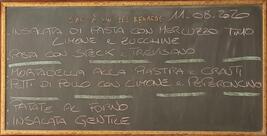 11.08.2020
INSALATA DI PASTA CON MERLUZZO TIMO
LIMONE E ZUCCHINE
PASTA CON SPECK E TREVISANO
MORTADELLA ALLA PIASTRA E CRAUTI
PETTI DI POLLO CON LIMONE E PEPERONCINO
PATATE AL FORNO
INSALATA GENTILE